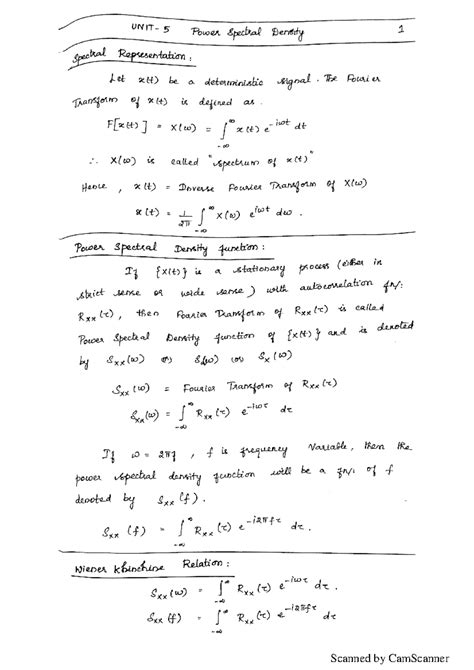 UNIT-5 Power Spectral Density 1
Spectral Representation :
Let x(t) be a deterministic signal. The Fourier
Transform of x(t) is defined as.
F[x(t)] = X(ω) = ∫_{-∞}^{∞} x(t) e^{-iωt} dt
∴ X(ω) is called "spectrum of x(t)"
Hence, x(t) = Inverse Fourier Transform of X(ω)
x(t) = 1/2π ∫_{-∞}^{∞} X(ω) e^{iωt} dω.
Power Spectral Density function :
If {X(t)} is a stationary process (either in
strict sense or wide sense) with autocorrelation fn/:
Rxx(τ), then Fourier Transform of Rxx(τ) is called
Power Spectral Density function of {X(t)} and is denoted
by Sxx(ω) or S(ω) or Sx(ω)
Sxx(ω) = Fourier Transform of Rxx(τ)
Sxx(ω) = ∫_{-∞}^{∞} Rxx(τ) e^{-iωτ} dτ
If ω = 2πf, f is frequency variable, then the
power spectral density function will be a fn/: of f
denoted by Sxx(f).
Sxx(f) = ∫_{-∞}^{∞} Rxx(τ) e^{-i2πfτ} dτ.
Wiener Khinchine Relation :
Sxx(ω) = ∫_{-∞}^{∞} Rxx(τ) e^{-iωτ} dτ.
Sxx(f) = ∫_{-∞}^{∞} Rxx(τ) e^{-i2πfτ} dτ
Scanned by CamScanner